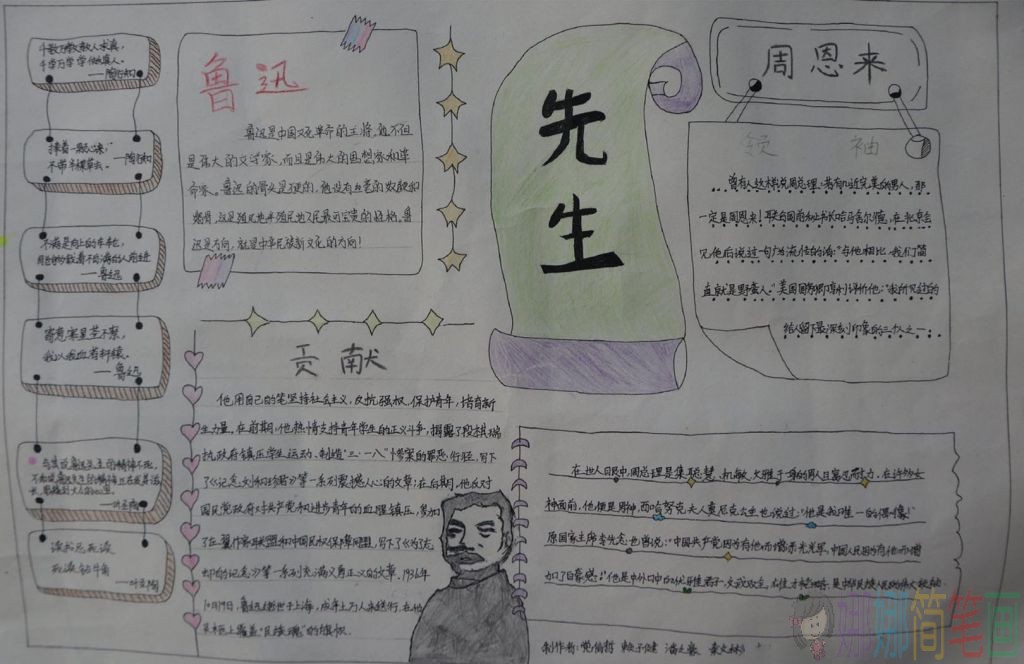 千教万教教人求真，
千学万学学做真人。
——陶行知
捧着一颗心来，
不带半根草去。——陶行知
不满是向上的车轮，
——鲁迅
寄意寒星荃不察，
我以我血荐轩辕。
——鲁迅
——叶圣陶
读书忌死读
死读钻牛角
——叶圣陶
鲁迅
鲁迅是中国文化革命的主将，他不但
是伟大的文学家，而且是伟大的思想家和革
命家。鲁迅的骨头是硬的，他没有丝毫的奴颜和
媚骨，这是殖民地半殖民地人民最可宝贵的性格。鲁
迅是方向，就是中华民族新文化的方向！
先生
周恩来
领袖
曾有人这样说周总理：若有接近完美的男人，那
一定是周恩来！联合国前秘书长哈马舍尔德，在北京会
见他后说过一句广为流传的话："与他相比，我们简
直就是野蛮人。"美国国务卿亨利评价他："我所见过的
给人留下最深刻印象的三权人之一；
贡献
他用自己的笔坚持社会主义，反抗强权，保护青年，培育新
生力量。在前期，他热情支持青年学生的正义斗争，揭露了段祺瑞
执政府镇压学生运动、制造"三·一八"惨案的罪恶行径，写下
了《记念刘和珍君》等一系列震撼人心的文章；在后期，他反对
国民党政府对共产党和进步青年的血腥镇压，参加
了左翼作家联盟和中国民权保障同盟，写下了《为了忘
却的记念》等一系列充满义勇正义的文章。1936年
10月19日，鲁迅逝世于上海，成千上万人来送行，在他
灵柩上覆盖"民族魂"的旗帜。
在世人眼中，周总理是集聪慧、机敏、文雅于一身的男人且富迅魅力，在许多女
神面前，他便是男神，西哈努克夫人莫尼克公主也说过："他是我唯一的偶像！"
原国家主席李先念也曾说："中国共产党因为有他而增添光荣，中国人民因为有他而增
加了自豪感。"
制作者：
娜娜简笔画